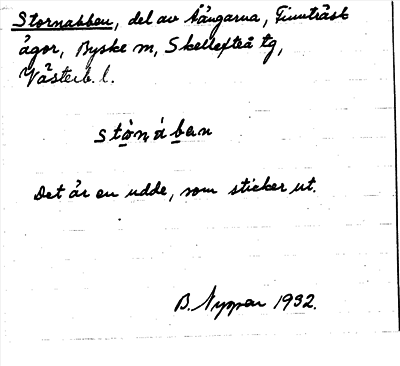 Stornabben, del av Ängarna, Finnträsk
ägor, Byske sn, Skellefteå tg,
Västerb. l.
stòn, á ban
Det är en udde, som sticker ut.
B. Nyman 1932.